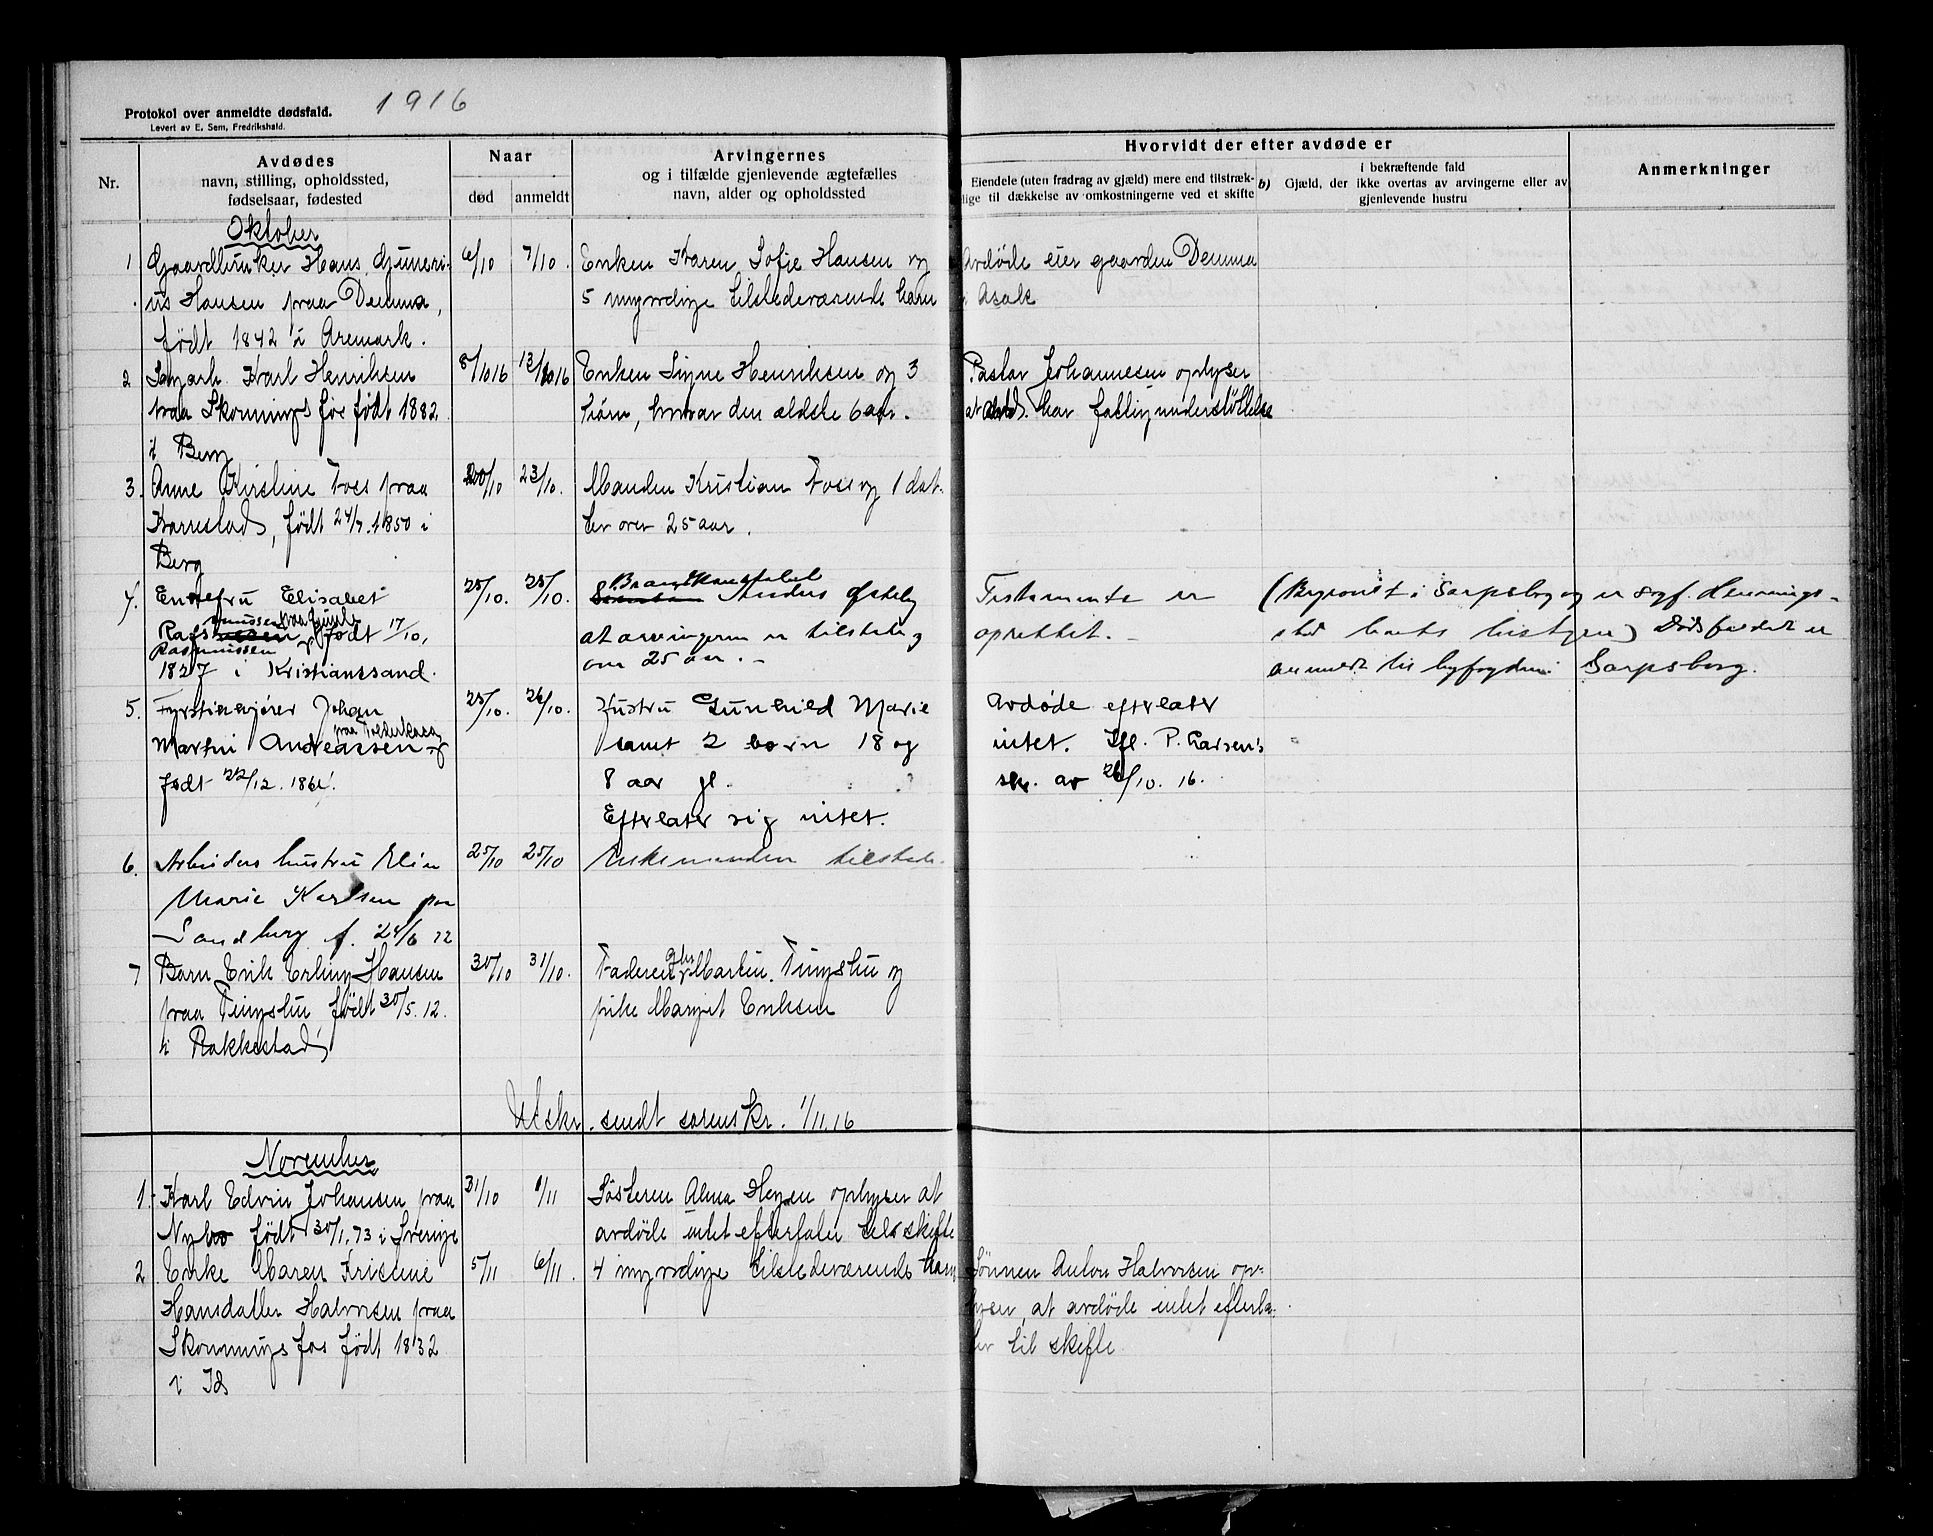 Protokol over anmeldte dødsfald. 1916
Levert av E. Sem, Fredrikshald.
Nr.
Avdødes
navn, stilling, opholdssted,
fødselsaar, fødested
Naar
død
anmeldt
Arvingernes
og i tilfælde gjenlevende ægtefælles
navn, alder og opholdssted
Hvorvidt der efter avdøde er
Eiendele (uten fradrag av gjæld) mere end tilstræk-
lige til dækkelse av omkostningerne ved et skifte
b)
i bekræftende fald
Gjæld, der ikke overtas av arvingerne eller av
gjenlevende hustru
Anmerkninger
Oktober
1 Gaardbruker Hans Guneri- 6/10 7/10. Enken Karen Sofie Hansen og Avdøde eier gaarden Demma
us Hansen paa Demma, 5 myndige tilstedeværende barn i Asak
født 1842 i Aremark.
2 Karl Henriksen 8/10 16 13/10 16 Enken Signe Henriksen og 3 Pastor Johannesen oplyser
paa Skonningsfos født 1882 børn, hvorav den ældste 6 aar. at avd. har fattigunderstøttelse
i Berg
3. Anne Kirstine Foss paa 20/10 23/10. Manden Kristian Foss og 1 dat-
Karrestad, født 24/7. 1850 i ter over 25 aar.
Berg
4. Enkefru Elisabet 25/10. 25/10. Brandkonstabel Anders Østeby Testamente er (Begravet i Sarpsborg og er
Rasmussen født 17/10, at arvingerne er tilstede og oprettet. - Dødsfaldet er
1827 i Kristianssand. over 25 aar. - anmeldt til byfogden i Sarpsborg.
5. Fyrstikkskjører Johan 25/10. 26/10. Hustru Gunhild Marie Avdøde efterlater
Martin Andreassen paa samt 2 børn 18 og intet. Ifl. P. Larsen's
født 22/12. 1861. 8 aar gl. skr. av 26/10. 16.
Efterlater sig intet.
6. Arbeiders hustru Elin 25/10 25/10 Enkemanden tilstede.
Marie Karlsen paa
Sandberg f. 24/6 72
7 Barn Erik Erling Hansen 30/10 31/10. Faderen Martin Tingstu og
paa Tingstu født 30/5. 12. pike Margit Eriksen
i Rakkestad
Utskr. sendt sorenskr. 1/11.16
November
1. Karl Edvin Johansen paa 31/10 1/11 Søsteren Alma Heyen oplyser at
Nybo født 30/1. 73 i Sverige avdøde intet efterlater til skifte
2 Enke Maren Kristine 5/11 6/11. 4 myndige tilstedeværende barn Sønnen Anton Halvorsen op-
Hansdatter Halvorsen paa lyser, at avdøde intet efterla-
Skonningsfos født 1832 ter til skifte
i Id